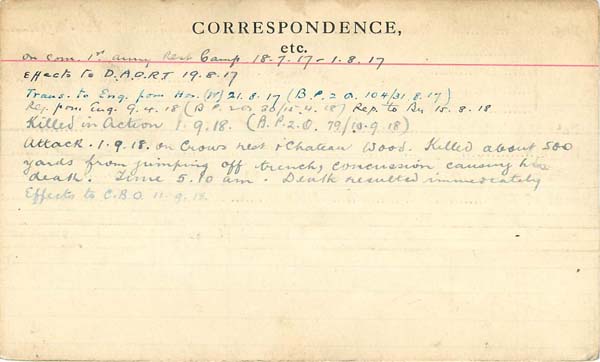 CORRESPONDENCE,
etc.
on com. 1st army Rest Camp 18-7-17-1.8.17
Effects to D.A.O.R.T 19.8.17
Trans. to Eng. from Hos. 21.8.17 (B.P.2 O. 104/31.8.17)
Rej. from Eng. 9.4.18 (B.P.2 O. 30/15.4.18) Rep. to Bn. 15.8.18
Killed in Action 1.9.18. (B.P.2.O. 79/10.9.18)
Attack. 1.9.18. on Crows nest & Chateau Wood. Killed about 500
yards from jumping off trench, concussion causing his
death. Time 5.10 am. Death resulted immediately
Effects to C.B.O. 11.9.18.